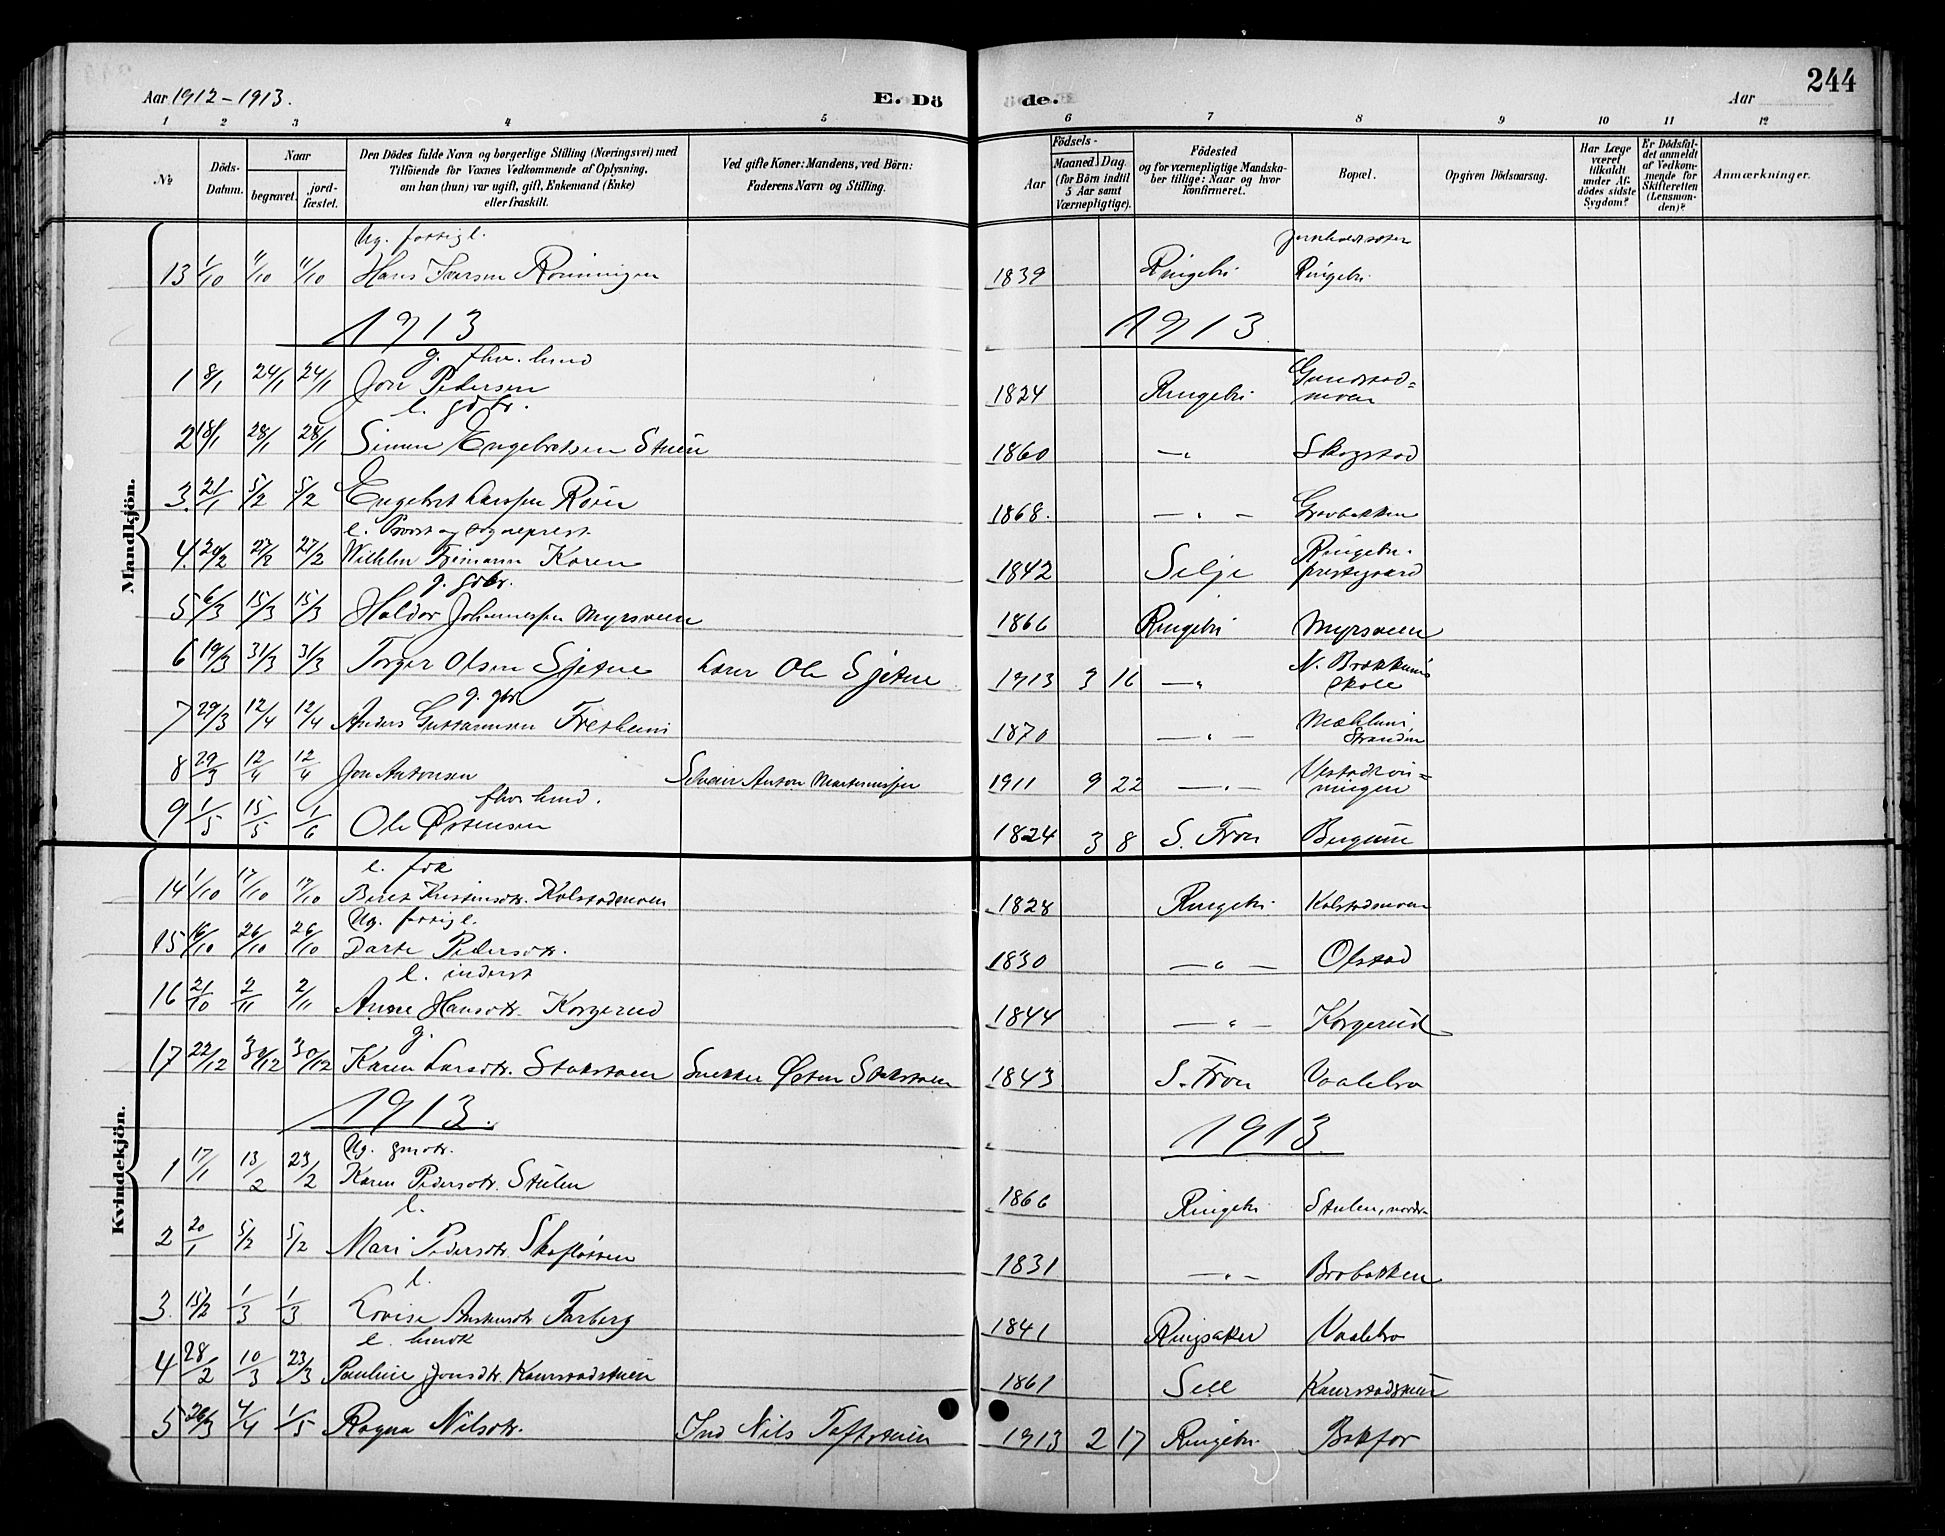 244
Aar 1912-1913.
E. Dö
de.
Aar
1 2 3 4 5 6 7 8 9 10 11 12
№
Döds-Datum.
Naar
begravet.
jordfæstet.
Den Dödes fulde Navn og borgerlige Stilling (Næringsvei) med
Tilföiende for Voxnes Vedkommende af Oplysning,
om han (hun) var ugift, gift, Enkemand (Enke)
eller fraskilt.
Ved gifte Koner: Mandens, ved Börn:
Faderens Navn og Stilling.
Födsels-
Aar
Maaned Dag
(for Börn indtil
5 Aar samt
Værnepligtige).
Födested
og for værnepligtige Mandska-
ber tillige: Naar og hvor
konfirmeret.
Bopæl.
Opgiven Dödsaarsag.
Har Læge
været
tilkaldt
under Af-
dödes sidste
Sygdom?
Er Dödsfal-
det anmeldt
af Vedkom-
mende for
Skifteretten
(Lensman-
den)?
Anmærkninger.
Mandkjön.
Ug. fattigl.
13 1/10 11/10 11/10 Hans Iversen Rönningen 1839 Ringebu Ringebu
1913 1913
g. fhv. husmd
1 8/1 24/1 24/1 Jon Pedersen 1824 Ringebu
e. gdbr.
2 18/1 28/1 28/1 Simen Engebretsen Stuen 1860 —"— Skogstad
3. 21/1 5/2 5/2 Engebret Larssen Röen 1868. —"— Grovbakken
e. Provst og sogneprest
4. 20/2 27/2 27/2 Wilhelm Frimann Koren 1842 Selje Ringebu prestegaard
g. gdbr.
5 6/3 15/3 15/3 Haldor Johannessen Myrsveen 1866 Ringebu Myrsveen
6 19/3 31/3 31/3 Torger Olsen Sjetne Lærer Ole Sjetne 1913 3 16 —"— N. Brekkums skole
g. gbr
7 29/3 12/4 12/4 Anders Fretheim 1870 —"—
8 29/3 12/4 12/4 Jon Antonsen Anton Martinussen 1911 9 22 —"—
fhv. husmd.
9 1/5 15/5 1/6 Ole Østensen 1824 3 8 S. Fron
Kvindekjön.
e. fok
14 1/10 17/10 17/10 Berit Kristensdtr. Kolstadmoen 1828 Ringebu Kolstadmoen
Ug. fattigl.
15 16/10 26/10 26/10 Darte Pedersdtr. 1830 —"— Olstad
e. inderst
16 21/10 2/11 2/11 Anne Hansdtr. Korgerud 1844 —"— Korgerud
g.
17 22/12 30/12 30/12 Karen Larsdtr. Stokstoen Snekker Østen Stokstoen 1843 S. Fron Vaalebro
1913. 1913.
Ug. gmdtr.
1 17/1 13/2 23/2 Karen Pedersdtr. Stulen 1866 Ringebu Stulen, nordr
e.
2 20/1 5/2 5/2 Mari Pedersdtr. Skafløtten 1831 —"— Brobakken
e.
3. 15/2 1/3 1/3 Lovise Farberg 1841 Ringsaker Vaalebro
e. husmdk
4 28/2 10/3 23/3 Pauline Jonsdtr. Kaurstadstuen 1861 Sell Kaurstadstuen
5 26/3 4/4 1/5 Ragna Nilsdtr. Ind Nils Toftestuen 1913 2 17 Ringebu Bakfor